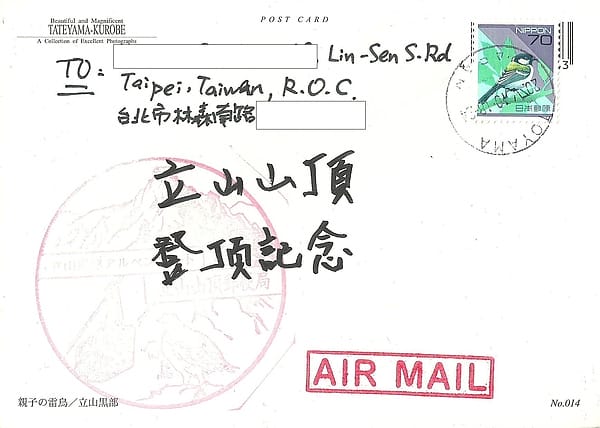 Beautiful and Magnificent
TATEYAMA-KUROBE
A Collection of Excellent Photographs
POST CARD
NIPPON
70
日本郵便
TOYAMA
TO:
Lin-Sen S.Rd
Taipei, Taiwan, R.O.C.
台北市林森南路
立山山頂
登頂記念
AIR MAIL
親子の雷鳥／立山黒部
No.014